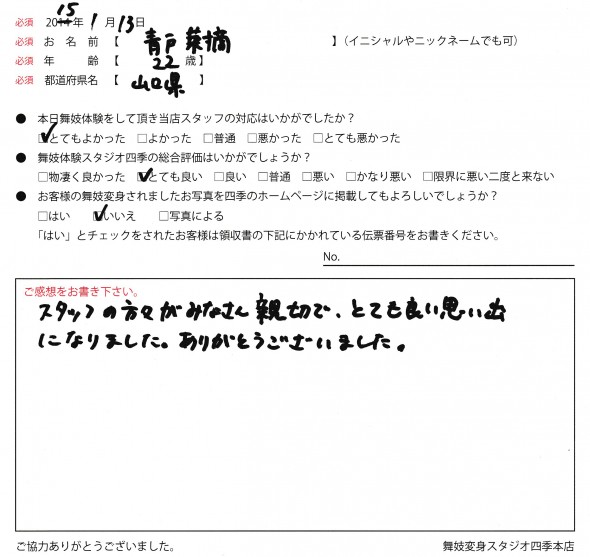 15
必須 2014年 1月13日
必須 お名前【 青戸 菜摘 】(イニシャルやニックネームでも可)
必須 年齢【 22 歳】
必須 都道府県名【 山口県 】
● 本日舞妓体験をして頂き当店スタッフの対応はいかがでしたか?
☑とてもよかった □よかった □普通 □悪かった □とても悪かった
● 舞妓体験スタジオ四季の総合評価はいかがでしょうか?
□物凄く良かった ☑とても良い □良い □普通 □悪い □かなり悪い □限界に悪い二度と来ない
● お客様の舞妓変身されましたお写真を四季のホームページに掲載してもよろしいでしょうか?
□はい ☑いいえ □写真による
「はい」とチェックをされたお客様は領収書の下記にかかれている伝票番号をお書きください。
No.
ご感想をお書き下さい。
スタッフの方々がみなさん親切で、とても良い思い出
になりました。ありがとうございました。
ご協力ありがとうございました。 舞妓変身スタジオ四季本店